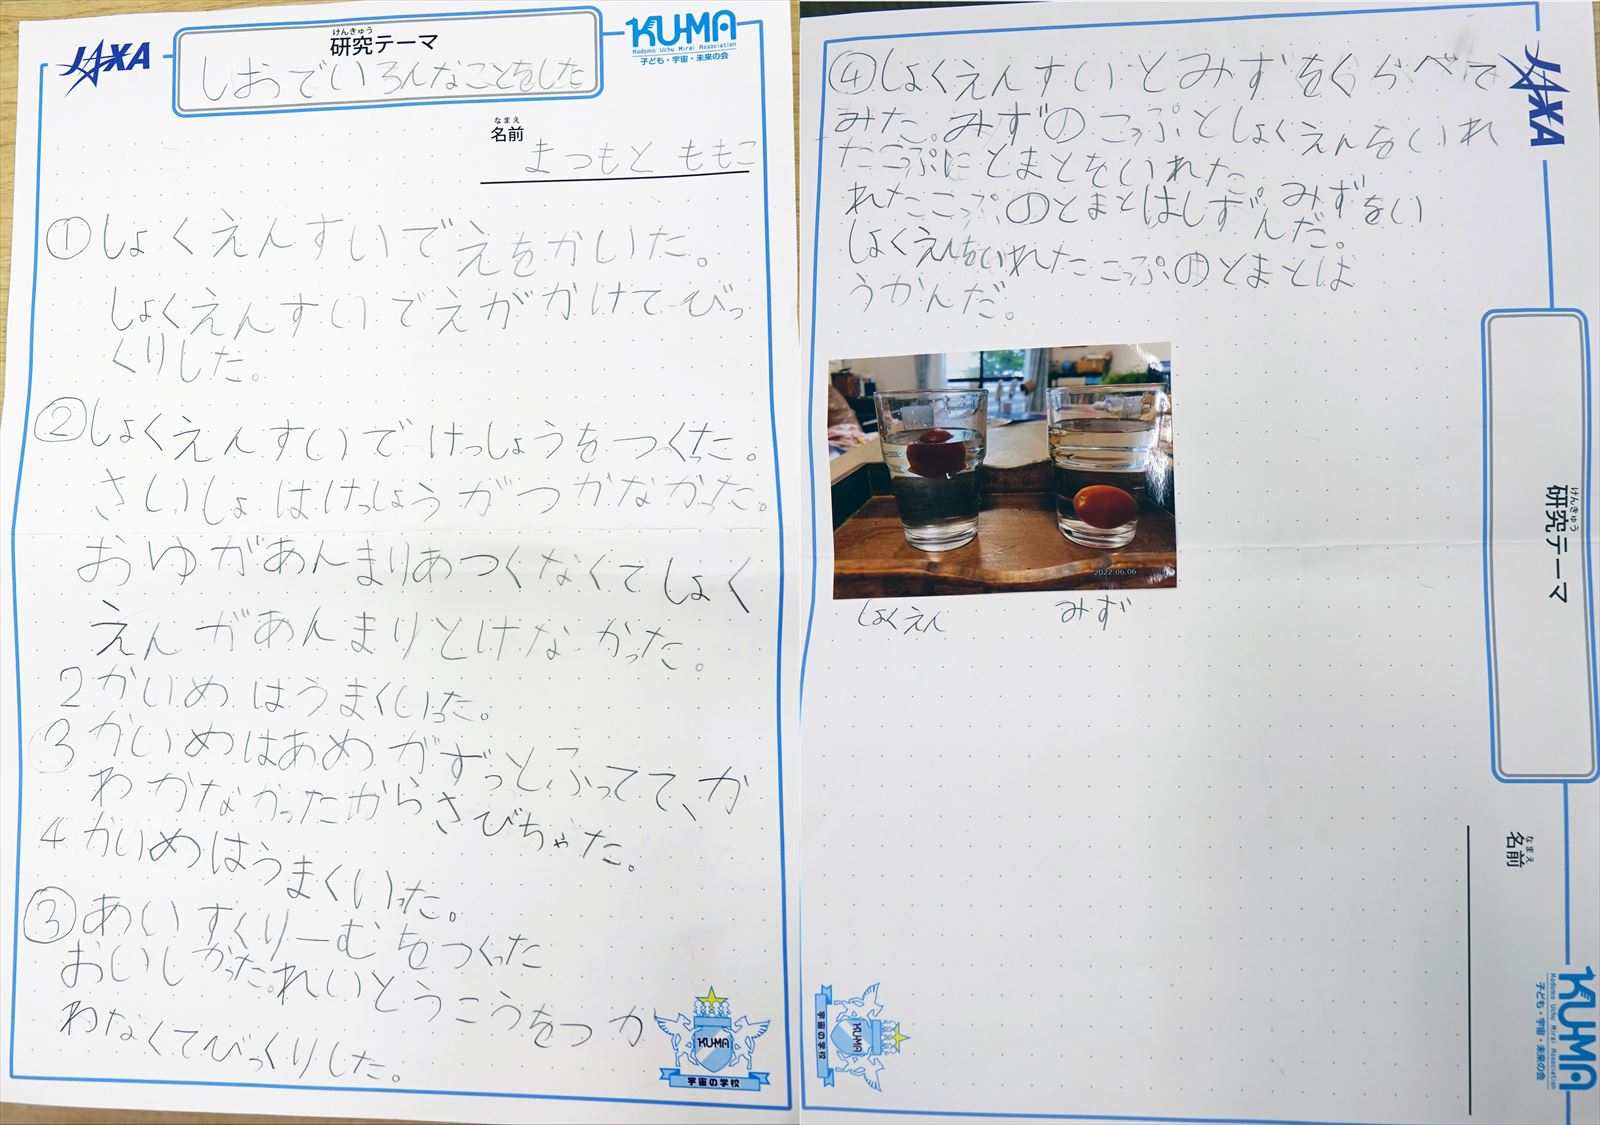 JAXA
けんきゅう
研究テーマ
KU-MA
Kodomo Uchu Mirai Association
子ども・宇宙・未来の会
しおでいろんなことをした
なまえ
名前
まつもと ももこ
①しょくえんすいでえをかいた。
しょくえんすいでえがかけてびっ
くりした。
②しょくえんすいでけっしょうをつくった。
さいしょはけっしょうがつかなかった。
おゆがあんまりあつくなくてしょく
えんがあんまりとけなかった。
2かいめはうまくいった。
3かいめはあめがずっとふってて、か
わかなかったからさびちゃた。
4かいめはうまくいった。
③あいすくりーむをつくった
おいしかった。れいとうこうをつか
わなくてびっくりした。
KU-MA
宇宙の学校
④しょくえんすいとみずをくらべて
みた。みずのこっぷとしょくえんをいれ
たこっぷにとまとをいれた
れたこっぷのとまとはしずんだ。みずをい
しょくえんをいれたこっぷのとまとは
うかんだ。
2022.06.06
しょくえん みず
JAXA
けんきゅう
研究テーマ
なまえ
名前
KU-MA
Kodomo Uchu Mirai Association
子ども・宇宙・未来の会
KU-MA
宇宙の学校